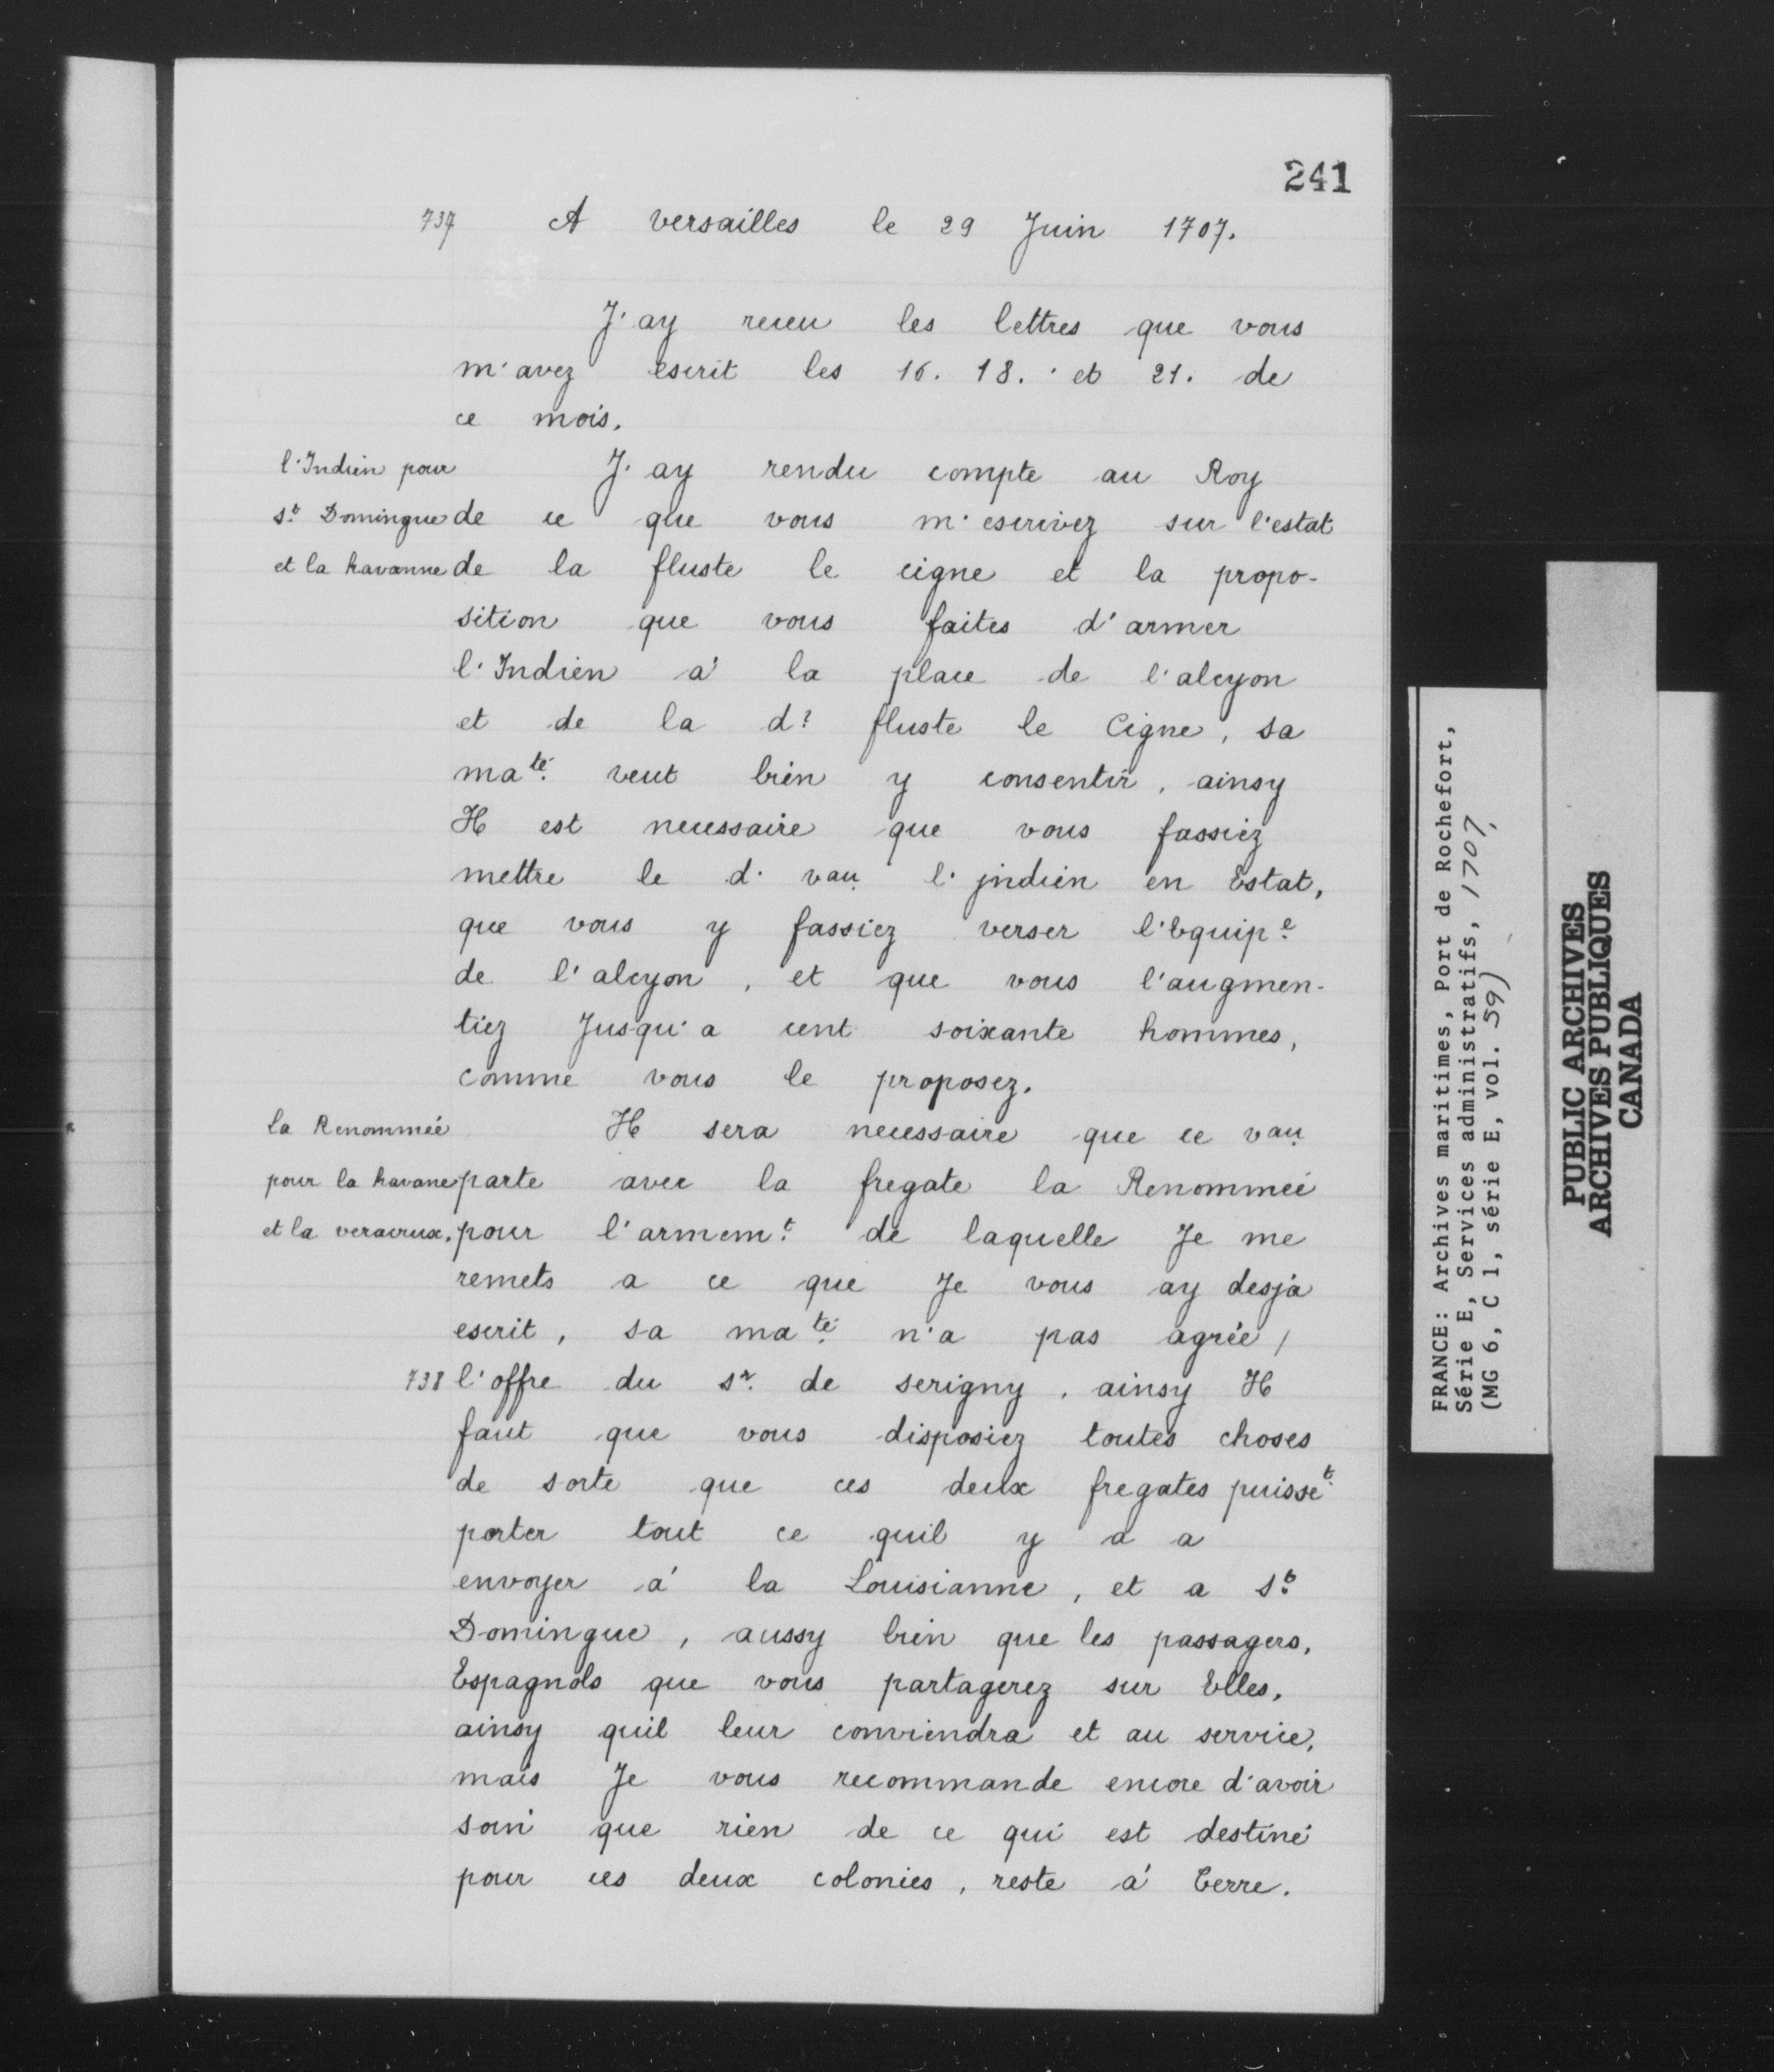 241
737 A versailles le 29 Juin 1707.
J'ay receu les lettres que vous
m'avez escrit les 16. 18. et 21. de
ce mois.
l'Indien pour
st. Domingue
et la havanne
J'ay rendu compte au Roy
de ce que vous m'escrivez sur l'estat
de la fluste le cigne et la propo-
sition que vous faites d'armer
l'Indien à la place de l'alcyon
et de la d? fluste le Cigne, sa
maté veut bien y consentir, ainsy
Il est necessaire que vous fassiez
mettre le d. vau l'jndien en Estat,
que vous y fassiez verser l'Equipe
de l'alcyon, et que vous l'augmen-
tiez Jusqu'a cent soixante hommes,
comme vous le proposez.
la Renommée
pour la havane
et la veracrux.
Il sera necessaire que ce vau
parte avec la fregate la Renommée
pour l'armemt. de laquelle Je me
remets a ce que Je vous ay desja
escrit, sa maté n'a pas agrée /
738 l'offre du sr. de serigny, ainsy Il
faut que vous disposiez toutes choses
de sorte que ces deux fregates puisset
porter tout ce quil y a a
envoyer à la Louisianne, et a st.
Domingue, aussy bien que les passagers,
Espagnols que vous partagerez sur Elles,
ainsy quil leur conviendra et au service,
mais Je vous recommande encore d'avoir
soin que rien de ce qui est destiné
pour ces deux colonies, reste à Terre.
FRANCE: Archives maritimes, Port de Rochefort,
Série E, Services administratifs, 1707,
(MG 6, C 1, série E, vol. 59)
PUBLIC ARCHIVES
ARCHIVES PUBLIQUES
CANADA